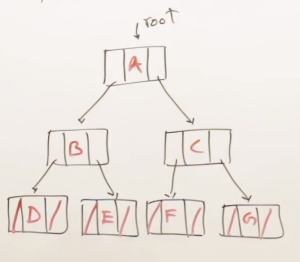 root
A
B C
D E F G